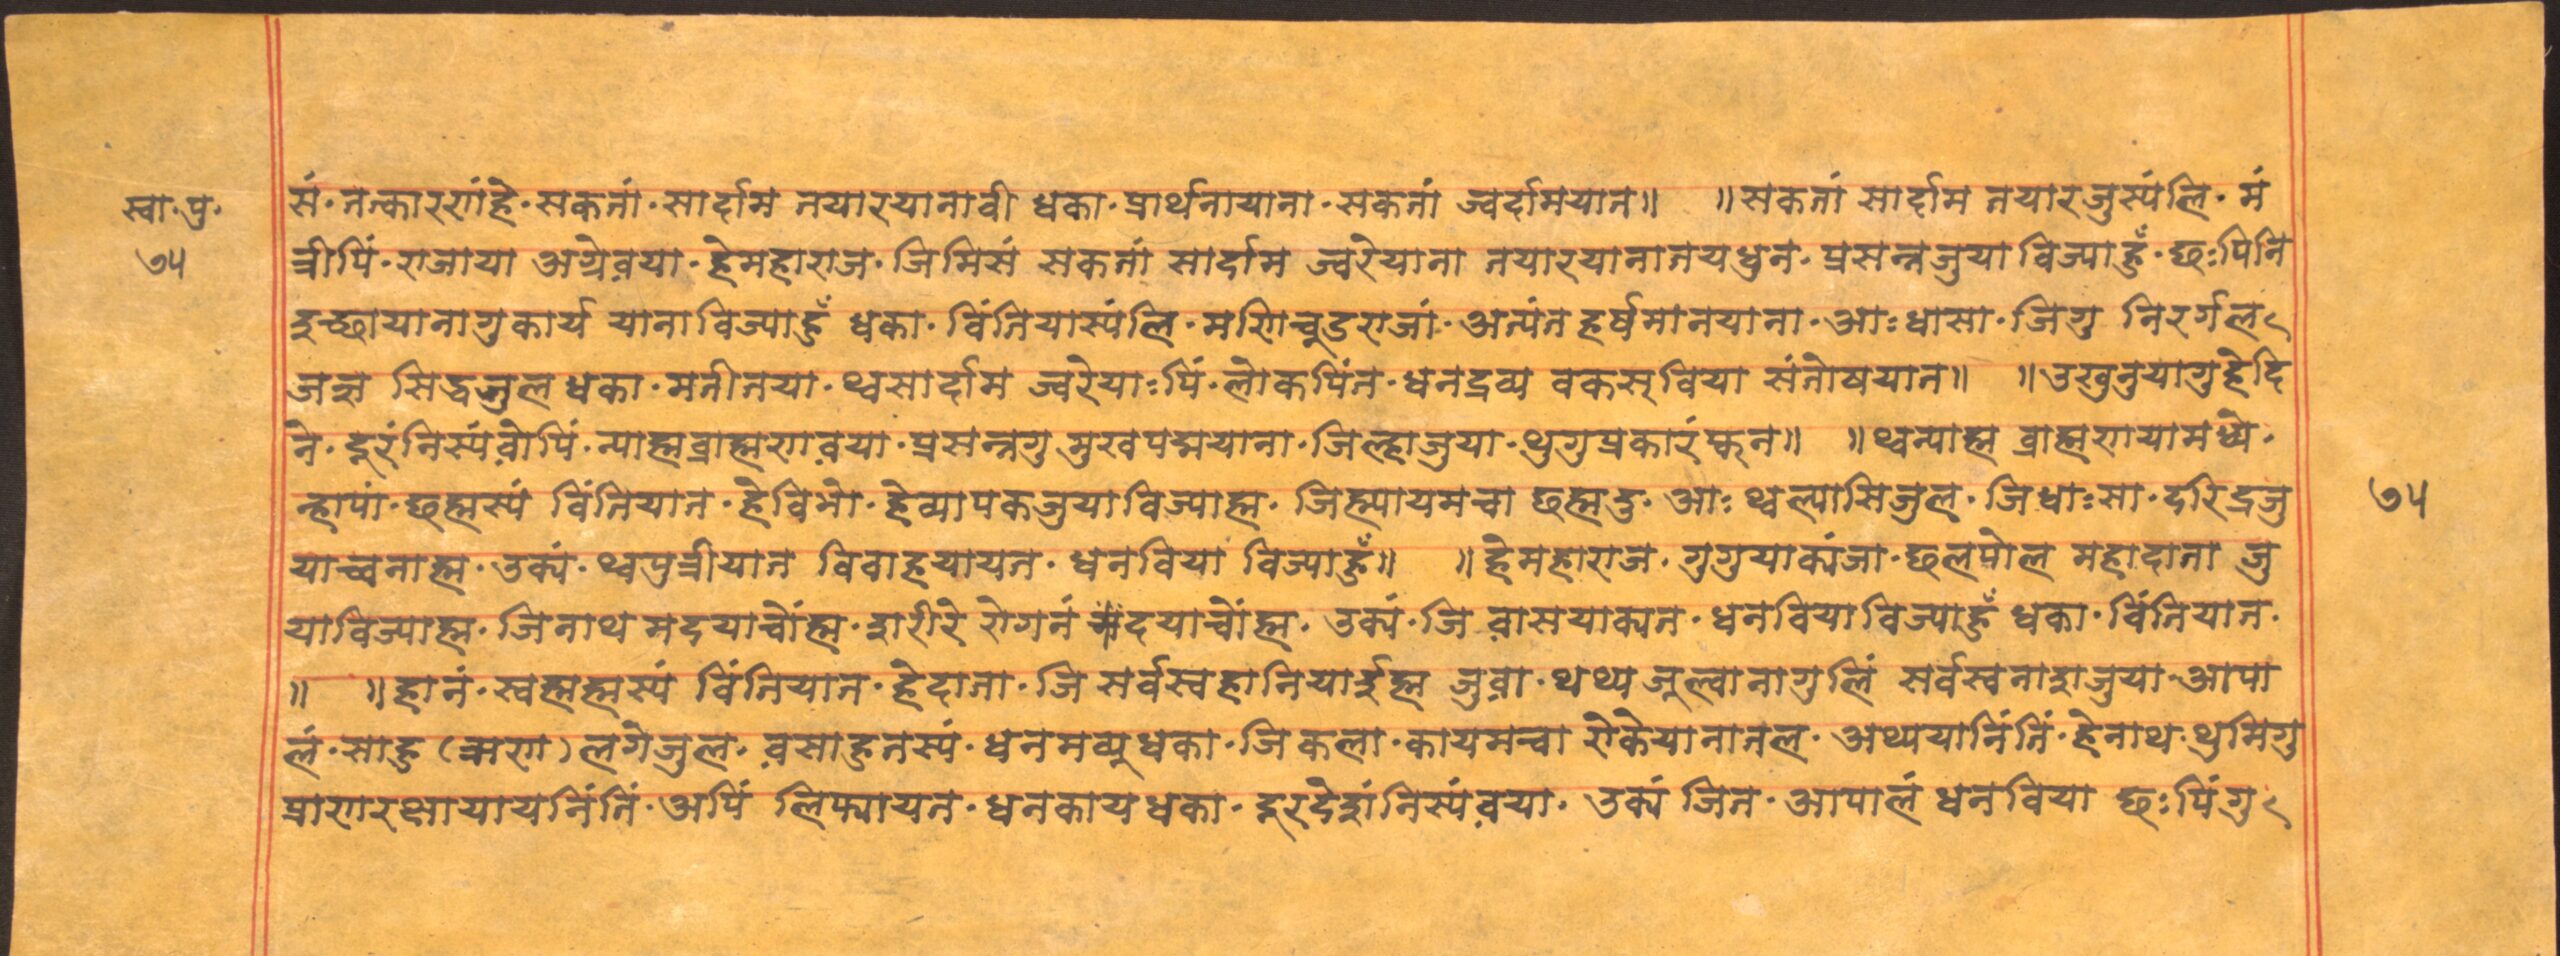 स्वा·पु·
७५
सं·तत्कारणंहे·सकतां·सार्दाम तयारयानावी धका·प्रार्थनायाना·सकतां ज्वर्दामयात॥ ॥सकतां सार्दाम तयारजुस्यंलि·मं
त्रीपिं·राजाया अग्रेव़या·हेमहाराज·जिमिसं सकतां सार्दाम ज्वरेयाना तयारयानातयधुन·प्रसन्नजुया विज्याहुँ·छःपिनि
इच्छायानागुकार्य यानाविज्याहुँ धका·विंतियास्यंलि·मणिचूडराजां·अत्यंत हर्षमानयाना·आःधासा·जिगु निरर्गल
जज्ञ सिद्धजुल धका·मतीतया·थ्वसार्दाम ज्वरेयाःपिं·लोकपिंत·धनद्रव्य वकस्विया संतोषयात॥ ॥उखुनुयागुहेदि
ने·दूरंनिस्यंव़ोपिं·न्याह्मब्राह्मणव़या·प्रसन्नगु मुखपद्मयाना·जिल्हाजुया·थुगुप्रकारंफ्वन॥ ॥थ्वन्याह्म ब्राह्मणयामध्ये·
न्हापां·छह्मस्यं विंतियात·हेविभो·हेव्यापकजुयाविज्याह्म·जिह्यायमचा छह्मदु·आः थ्वल्यासिजुल·जिधाःसा·दरिद्रजु
याच्वनाह्म·उक्यं·थ्वपुत्रीयात विवाहयायत·धनविया विज्याहुँ॥ ॥हेमहाराज·गुगुयाक्यंजा·छलपोल महादाता जु
याविज्याह्म·जिनाथ मदयाचोंह्म·शरीरे रोगनं दयाचोंह्म·उक्यं·जि व़ासयाक्यत·धनवियाविज्याहुँ धका·विंतियात·
॥ ॥हानं·स्वह्मह्मस्यं विंतियात·हेदाता·जि सर्वस्वहानियाईह्म जुव़ा·थथ्य जूल्वानागुलिं सर्वस्वनाशजुया·आपा
लं·साहु (ऋण) लगेजुल·व़साहुतस्यं·धनमव्यूधका·जि कला·कायमचा रोकेयानातल·अथ्ययानिंतिं·हेनाथ·थुमिगु
प्राणरक्षायायनिंतिं·अपिं लिफ्यायत·धनकायधका·दूरदेशंनिस्यंव़या·उक्यं जित·आपालं धनविया छःपिंगु
७५